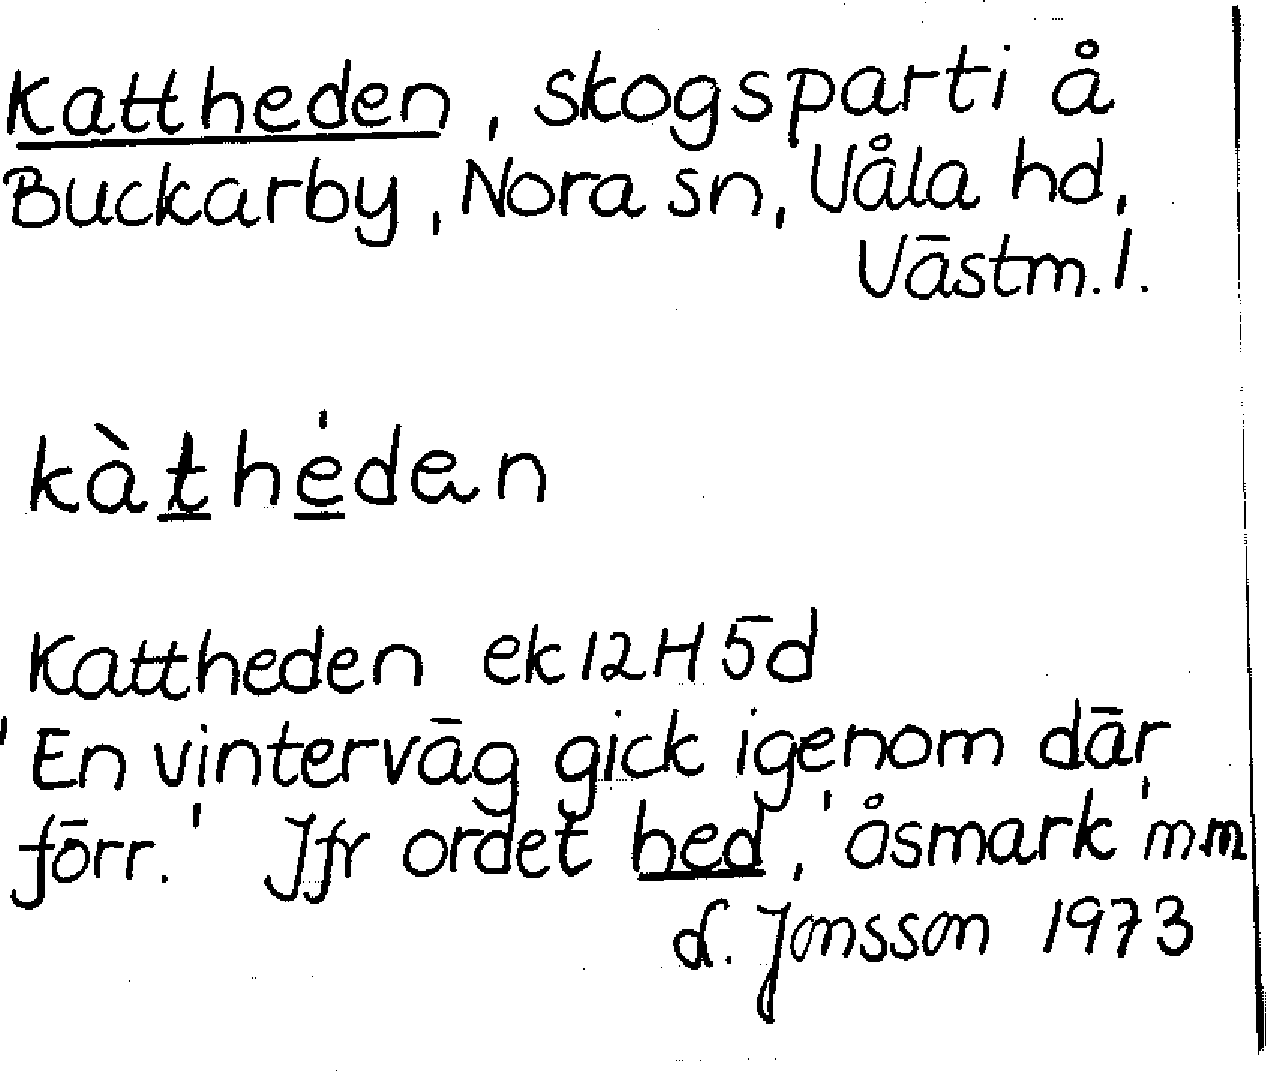 Kattheden, skogsparti å
Buckarby, Nora sn, Våla hd,
Västm. l.
kàthéden
Kattheden ek 12H 5d
'En vinterväg gick igenom där
förr.' Jfr ordet hed, 'åsmark' mm
Jonsson 1973